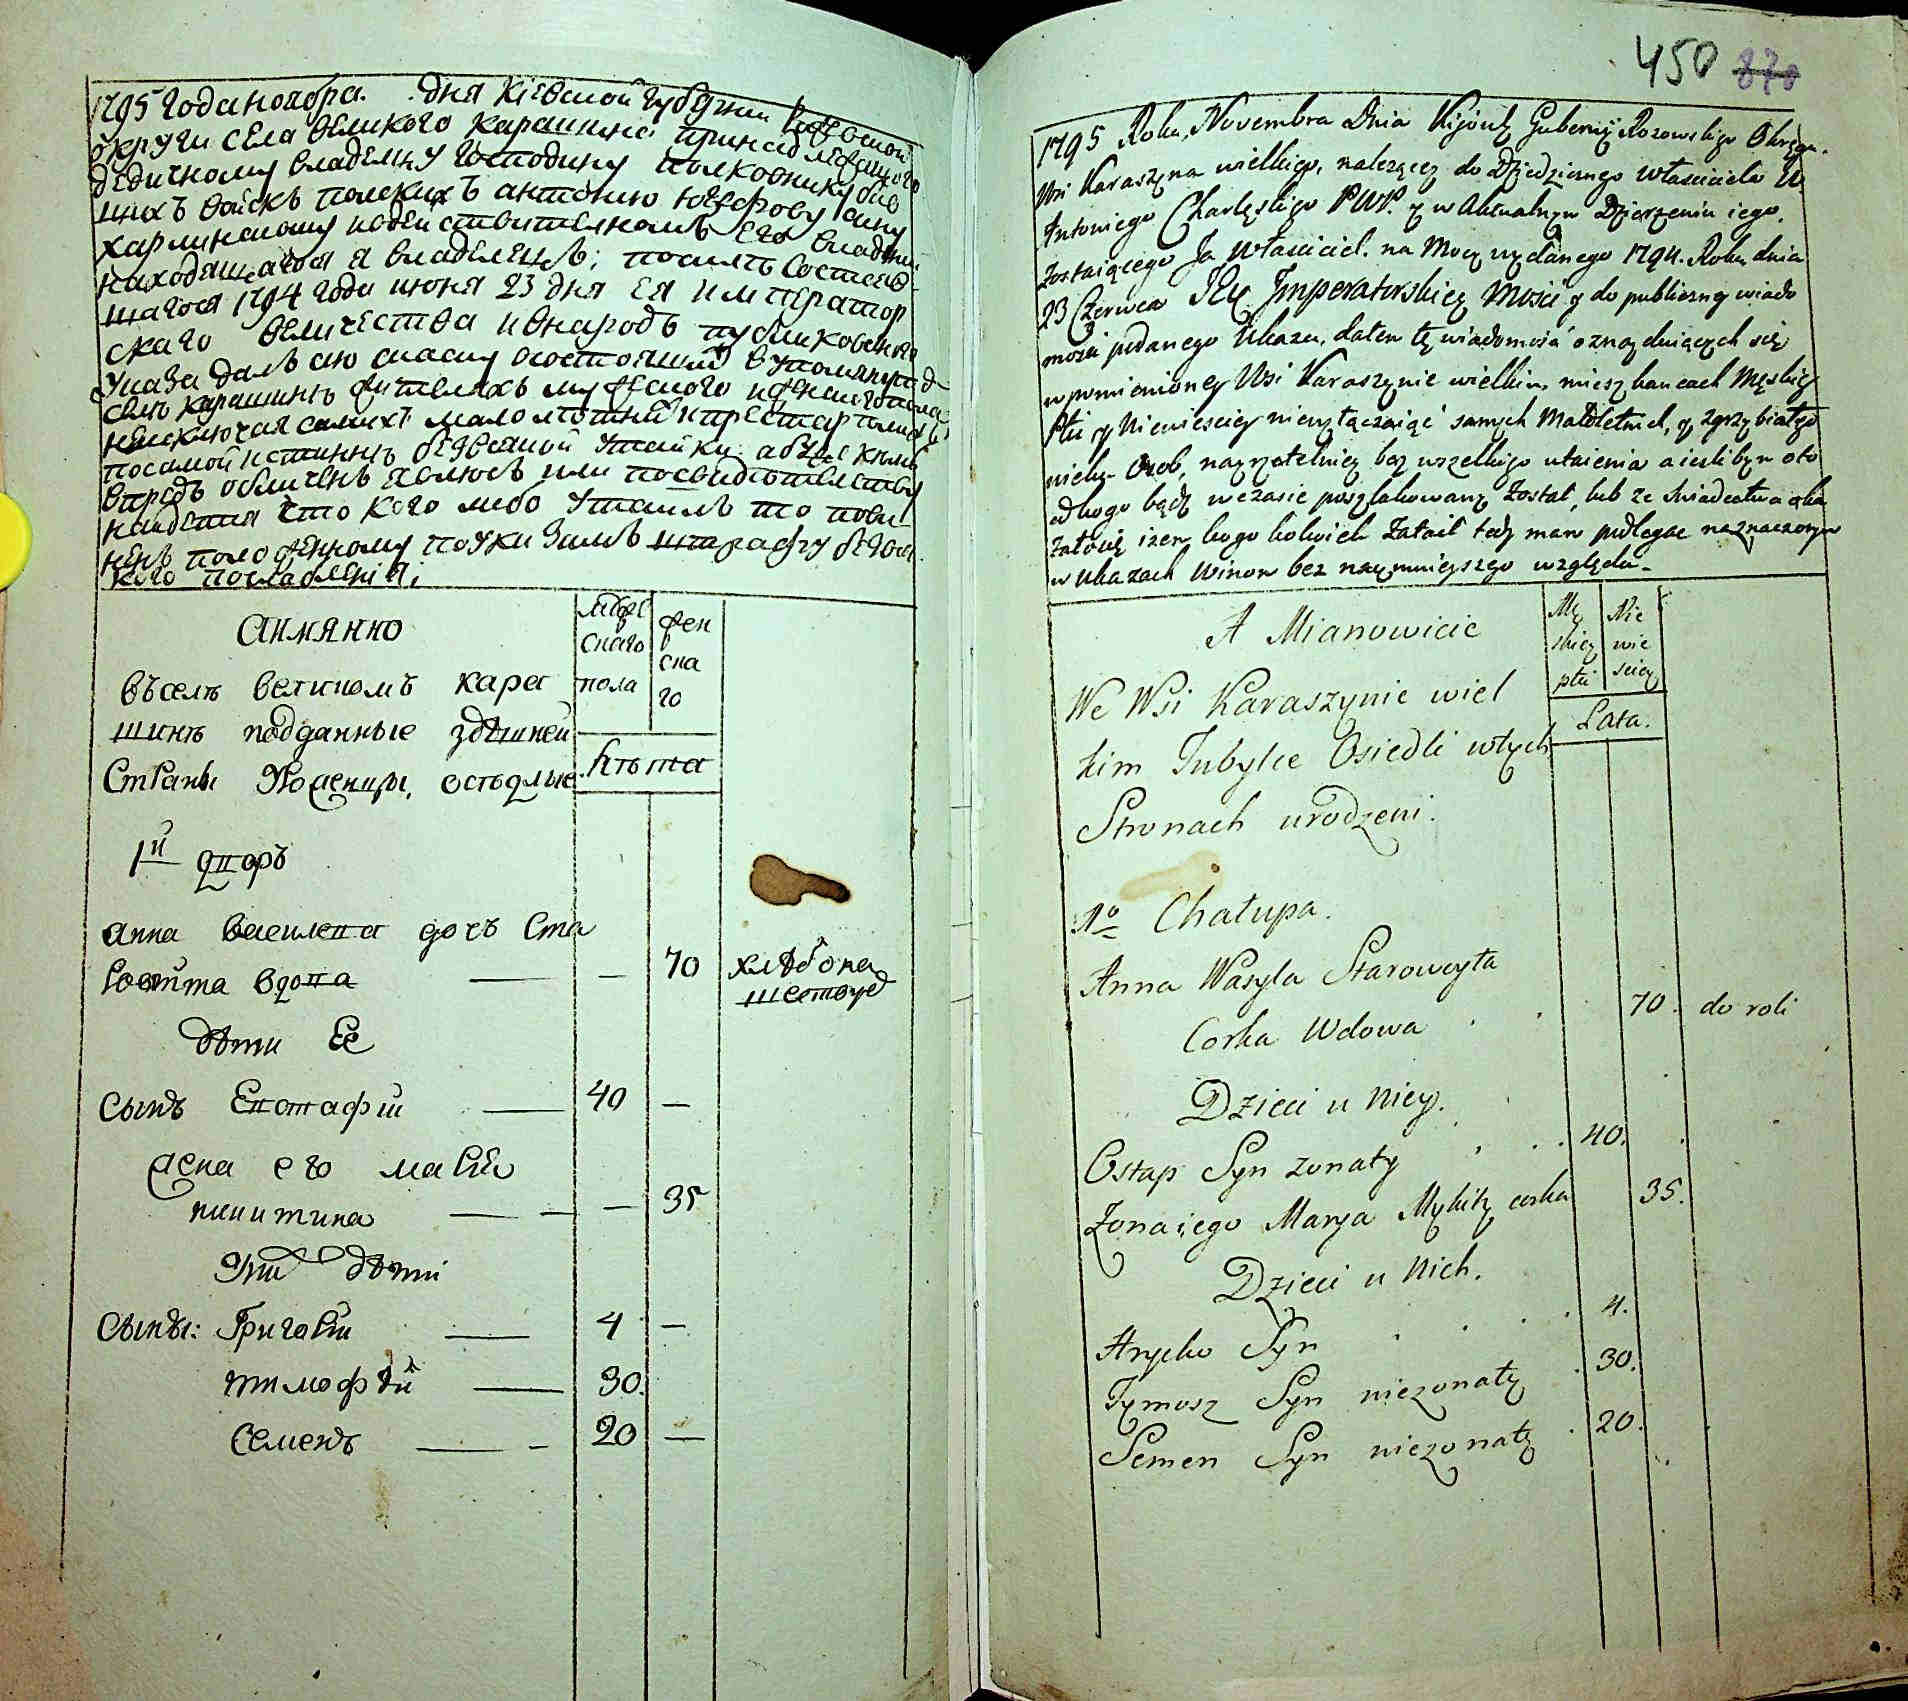 1795 года ноября. дня Кіевской губерніи
округи села великого карашина принадлежащого
дедичному владелцу Господину полковнику быв
шихъ войскъ полскихъ антонию юзефову сину
харлинскому и въ действителномъ его владении
находящагося я владелецъ; посилѣ состояв
шагося 1794 года июня 23 дня ея император
скаго величества и внародъ публикованного
Указа далъ сию сказку осостоящихъ в упомянутомъ
селѣ карашинѣ жителяхъ мужеского и женского пола
неисключая самихъ малолѣтнихъ и престарелихъ
посамой истиннѣ безъвсякой утайки. а будѣ кемъ
впредь обличенъ явлюсь или посвидѣтелству
найдется что кого либо утаилъ то пови
ненъ положенному поуказамъ штрафу безвся
кого послабленія;
Аимянно
мужескаго пола
женскаго
въселѣ великомъ кара
шинѣ подданные здѣшней
Страны Уроженцы, осѣдлые
Лѣта
1й дворъ
анна василева дочь Ста
ровойта вдова — — 70 хлѣбопа
шествуе
дѣти Ее
сынъ Евстафий — 40 —
жена его мария
никитина — — — 35
Ихъ дѣти
Сыны: Григорий — 4 —
тимофѣй — 30.
Семенъ — — 20 —
450 870
1795 Roku, Novembra Dnia Kijowskiey Gubernij Rozowskiego Okręgu.
Wsi Karaszyna wielkiego, nalezącey do Dziedzicznego własciciela W
Antoniego Charlęskiego PWP. y w Aktualnym Dzierzeniu iego.
Zostaiącego Ja własciciel. na Mocy wydanego 1794. Roku dnia
23 Czerwca Jey Imperatorskiey Mosci y do publiczney wiado
mosci podanego Ukazu, dałem tę wiadomosć o znayduiących się
w pomienioney Wsi Karaszynie wielkim mieszkancach Męskiey
Płci y Niewiesciey niewyłączaiąc samych Małoletnich, y zgrzybiałego
wieku Osob, nayrzetelniey bez wszelkiego utaienia a iesli bym oto
od kogo bądz w czasie poszlakowany został, lub ze swiadectwa oka
załosię izem kogo kolwiek zataił tedy mam podlegac naznaczonym
w Ukazach Winom bez naymnieyszego względu.
A Mianowicie
Mę
skiey
płci
Nie
wie
sciey
We Wsi Karaszynie wiel
Lata.
kim Tubylce Osiedli wtych
Stronach urodzeni.
1o Chałupa.
Anna Wasyla Starowoyta
Corka Wdowa 70. do roli
Dzieci u niey.
Ostap Syn zonaty 40.
Zona iego Marya Mykity corka 35.
Dzieci u nich.
Hrycko Syn 4.
Tymosz Syn niezonaty 30.
Semen Syn niezonaty 20.